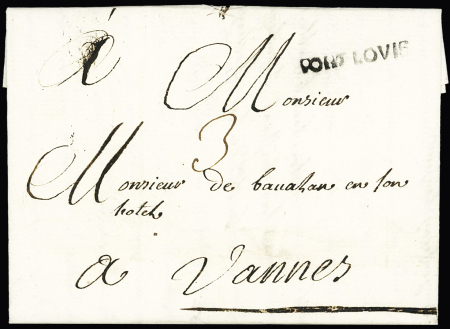 PORT LOVIS
à Monsieur
3
Monsieur de en son
hotel
a Vannes